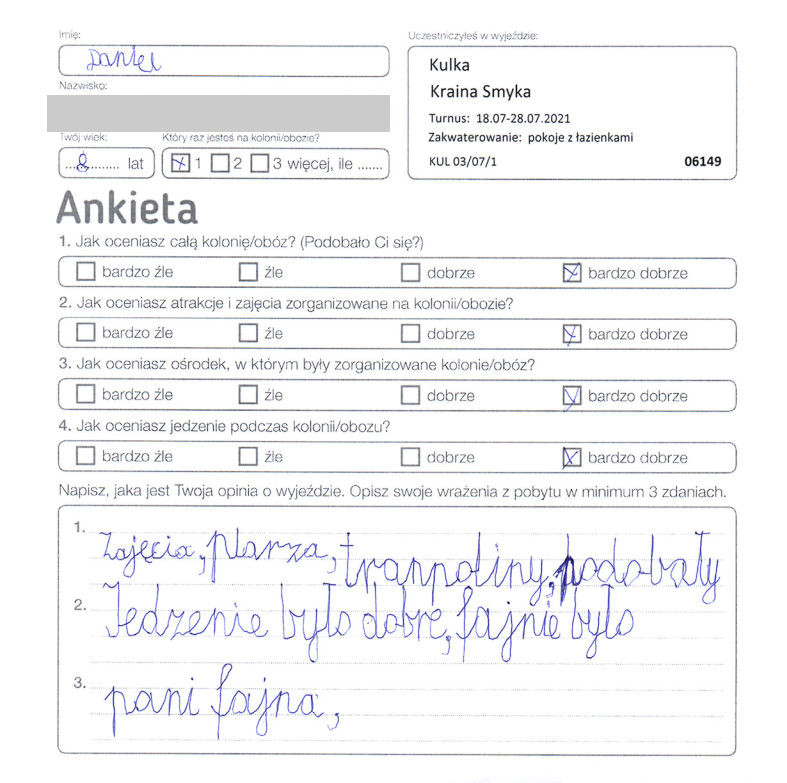 Imię:
Daniel
Nazwisko:
Twój wiek:
8 lat
Który raz jesteś na kolonii/obozie?
1 2 3 więcej, ile .......
Uczestniczyłeś w wyjeździe:
Kulka
Kraina Smyka
Turnus: 18.07-28.07.2021
Zakwaterowanie: pokoje z łazienkami
KUL 03/07/1 06149
Ankieta
1. Jak oceniasz całą kolonię/obóz? (Podobało Ci się?)
bardzo źle źle dobrze bardzo dobrze
2. Jak oceniasz atrakcje i zajęcia zorganizowane na kolonii/obozie?
bardzo źle źle dobrze bardzo dobrze
3. Jak oceniasz ośrodek, w którym były zorganizowane kolonie/obóz?
bardzo źle źle dobrze bardzo dobrze
4. Jak oceniasz jedzenie podczas kolonii/obozu?
bardzo źle źle dobrze bardzo dobrze
Napisz, jaka jest Twoja opinia o wyjeździe. Opisz swoje wrażenia z pobytu w minimum 3 zdaniach.
1. Zajęcia, plarza, tranpoliny, podobały
2. Jedzenie było dobre, fajnie było
3. pani fajna,